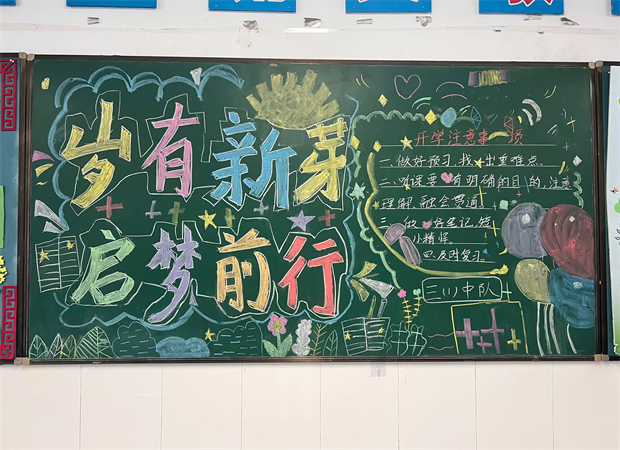 岁有新芽
启梦前行
开学注意事项
一、做好预习,找出重难点.
二、听课要有明确的目的,注意
理解、融会贯通
三、做好笔记,短
小精悍。
四、及时复习。
三(1)中队